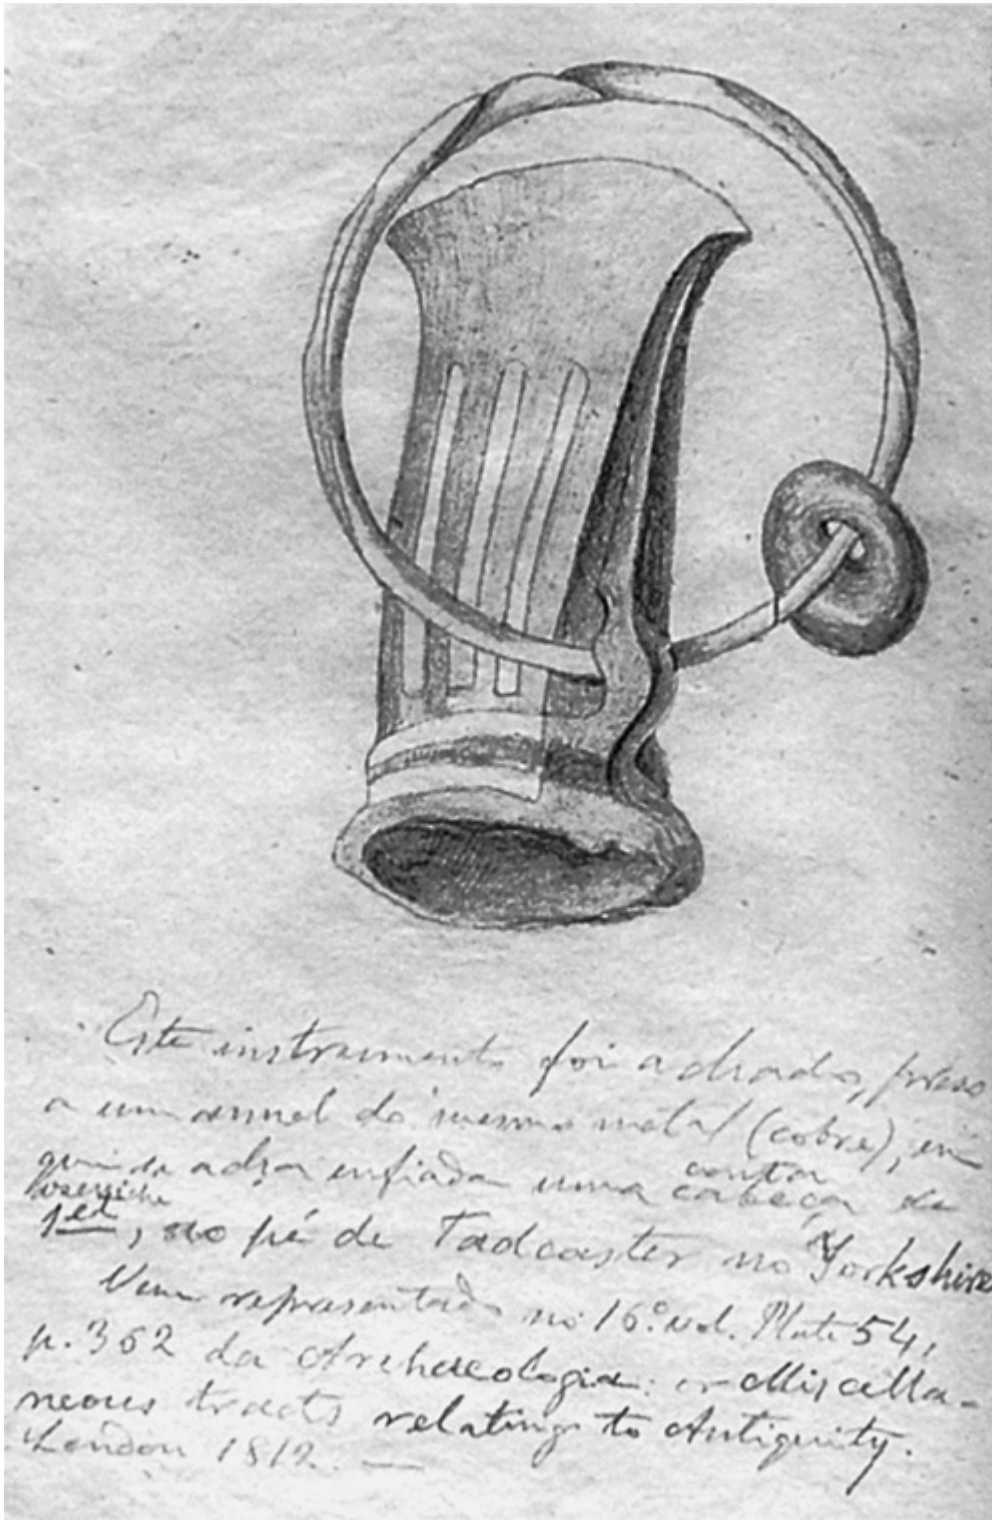 Este instrumento foi achado, preso
a um annel do mesmo metal (cobre), em
que se acha enfiada uma cabeça de
conta
jet, ao pé de Tadcaster no Yorkshire
Vem representado no 16º vol. Plate 54,
p. 362 da Archaeologia: or Miscella-
neous tracts relating to Antiquity.
London 1812. —